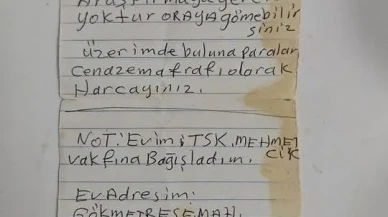 yoktur ORAYA gömebilir
siniz
üzerimde buluna paraları
cenaze mafrafı olorak
Harcayınız.
NOT: Evimi TSK. MEHMET
CİK
vakfına Bağışladım.
Ev Adresim: